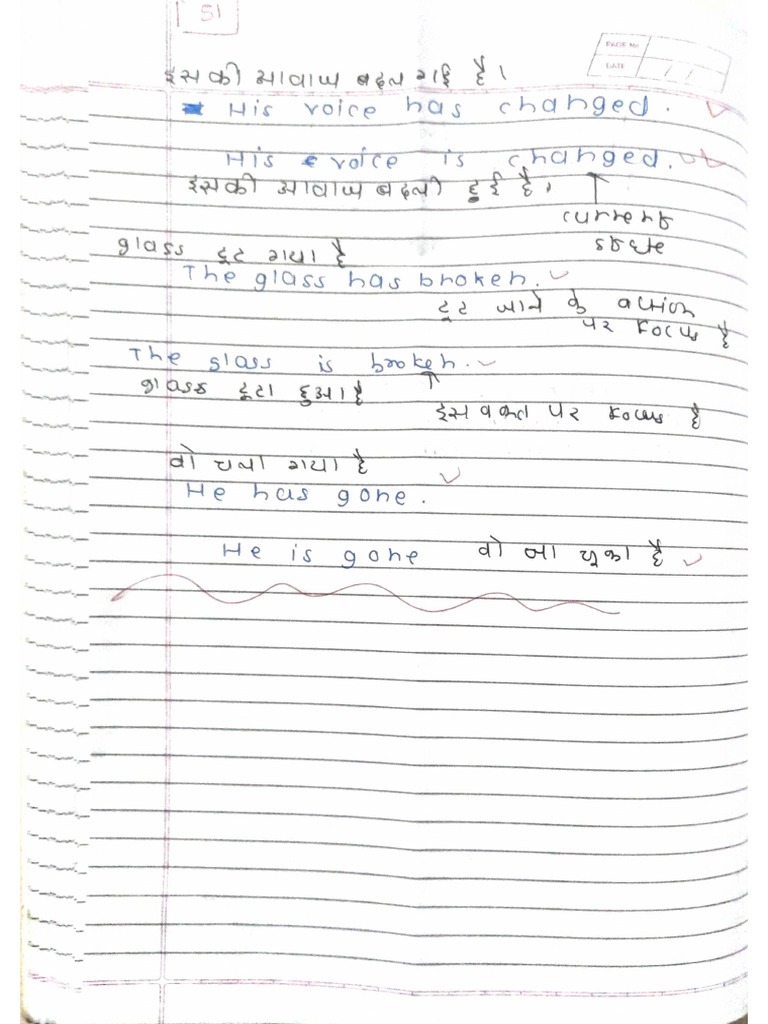 51
PAGE No
DATE
इसकी आवाज बदल गई है।
His voice has changed.
His voice is changed.
इसकी आवाज बदली हुई है।
current
state
glass टूट गया है
The glass has broken.
टूट जाने के action
पर focus है
The glass is broken.
glass टूटा हुआ है
इस वक्त पर focus है
वो चला गया है
He has gone.
He is gone वो जा चूका है